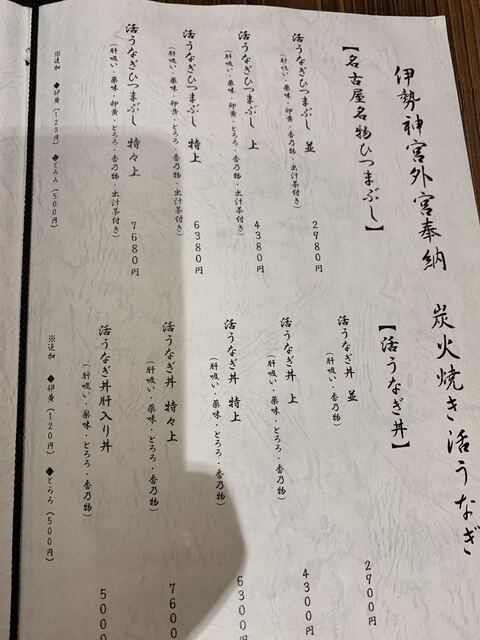 伊勢神宮外宮奉納 炭火焼き活うなぎ
【名古屋名物ひつまぶし】
活うなぎひつまぶし 並 2980円
(肝吸い・薬味・卵黄・香乃物・出汁茶付き)
活うなぎひつまぶし 上 4380円
(肝吸い・薬味・卵黄・とろろ・香乃物・出汁茶付き)
活うなぎひつまぶし 特上 6380円
(肝吸い・薬味・卵黄・とろろ・香乃物・出汁茶付き)
活うなぎひつまぶし 特々上 7680円
(肝吸い・薬味・卵黄・とろろ・香乃物・出汁茶付き)
※追加 ◆卵黄(120円) ◆とろろ(500円)
【活うなぎ丼】
活うなぎ丼 並 2900円
(肝吸い・香乃物)
活うなぎ丼 上 4300円
(肝吸い・薬味・とろろ・香乃物)
活うなぎ丼 特上 6300円
(肝吸い・薬味・とろろ・香乃物)
活うなぎ丼 特々上 7600
(肝吸い・薬味・とろろ・香乃物)
活うなぎ丼肝入り丼 5000
(肝吸い・薬味・とろろ・香乃物)
※追加 ◆卵黄(120円) ◆とろろ(500円)